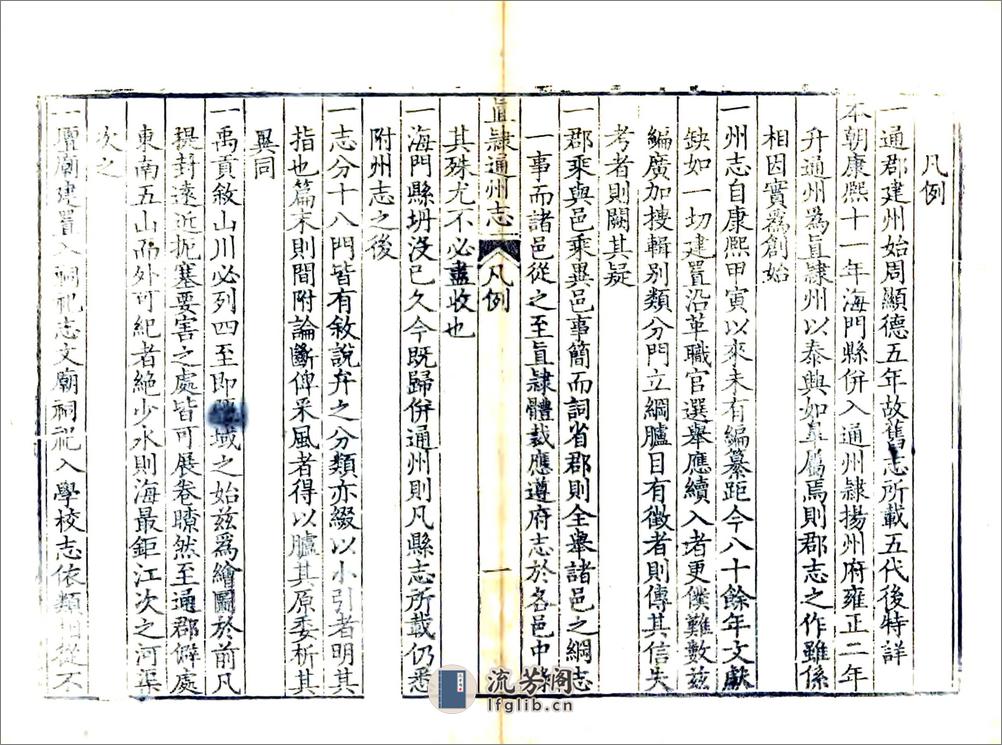 凡例
一通郡建州始周顯德五年故舊志所載五代後特詳
本朝康熙十一年海門縣併入通州隸揚州府雍正二年
升通州爲直隸州以泰興如臯屬焉則郡志之作雖係
相因實爲創始
一州志自康熙甲寅以來未有編纂距今八十餘年文獻
缺如一切建置沿革職官選舉應續入者更僕難數茲
編廣加搜輯別類分門立綱臚目有徵者則傳其信失
考者則闕其疑
一郡乘與邑乘異邑事簡而詞省郡則全舉諸邑之綱志
一事而諸邑從之至直隸體裁應遵府志於各邑中
其殊尤不必盡收也
直隸通州志
凡例
一
一海門縣坍沒已久今既歸併通州則凡縣志所載仍悉
附州志之後
一志分十八門皆有敘說弁之分類亦綴以小引者明其
指也篇末則間附論斷俾采風者得以臚其原委析其
異同
一禹貢敘山川必列四至即域之始茲爲繪圖於前凡
提封遠近扼塞要害之處皆可展卷瞭然至通郡僻處
東南五山而外可紀者絶少水則海最鉅江次之河渠
次之
一壇廟建置入祠祀志文廟祠祀入學校志依類相從不
流芳阁
lfglib.cn